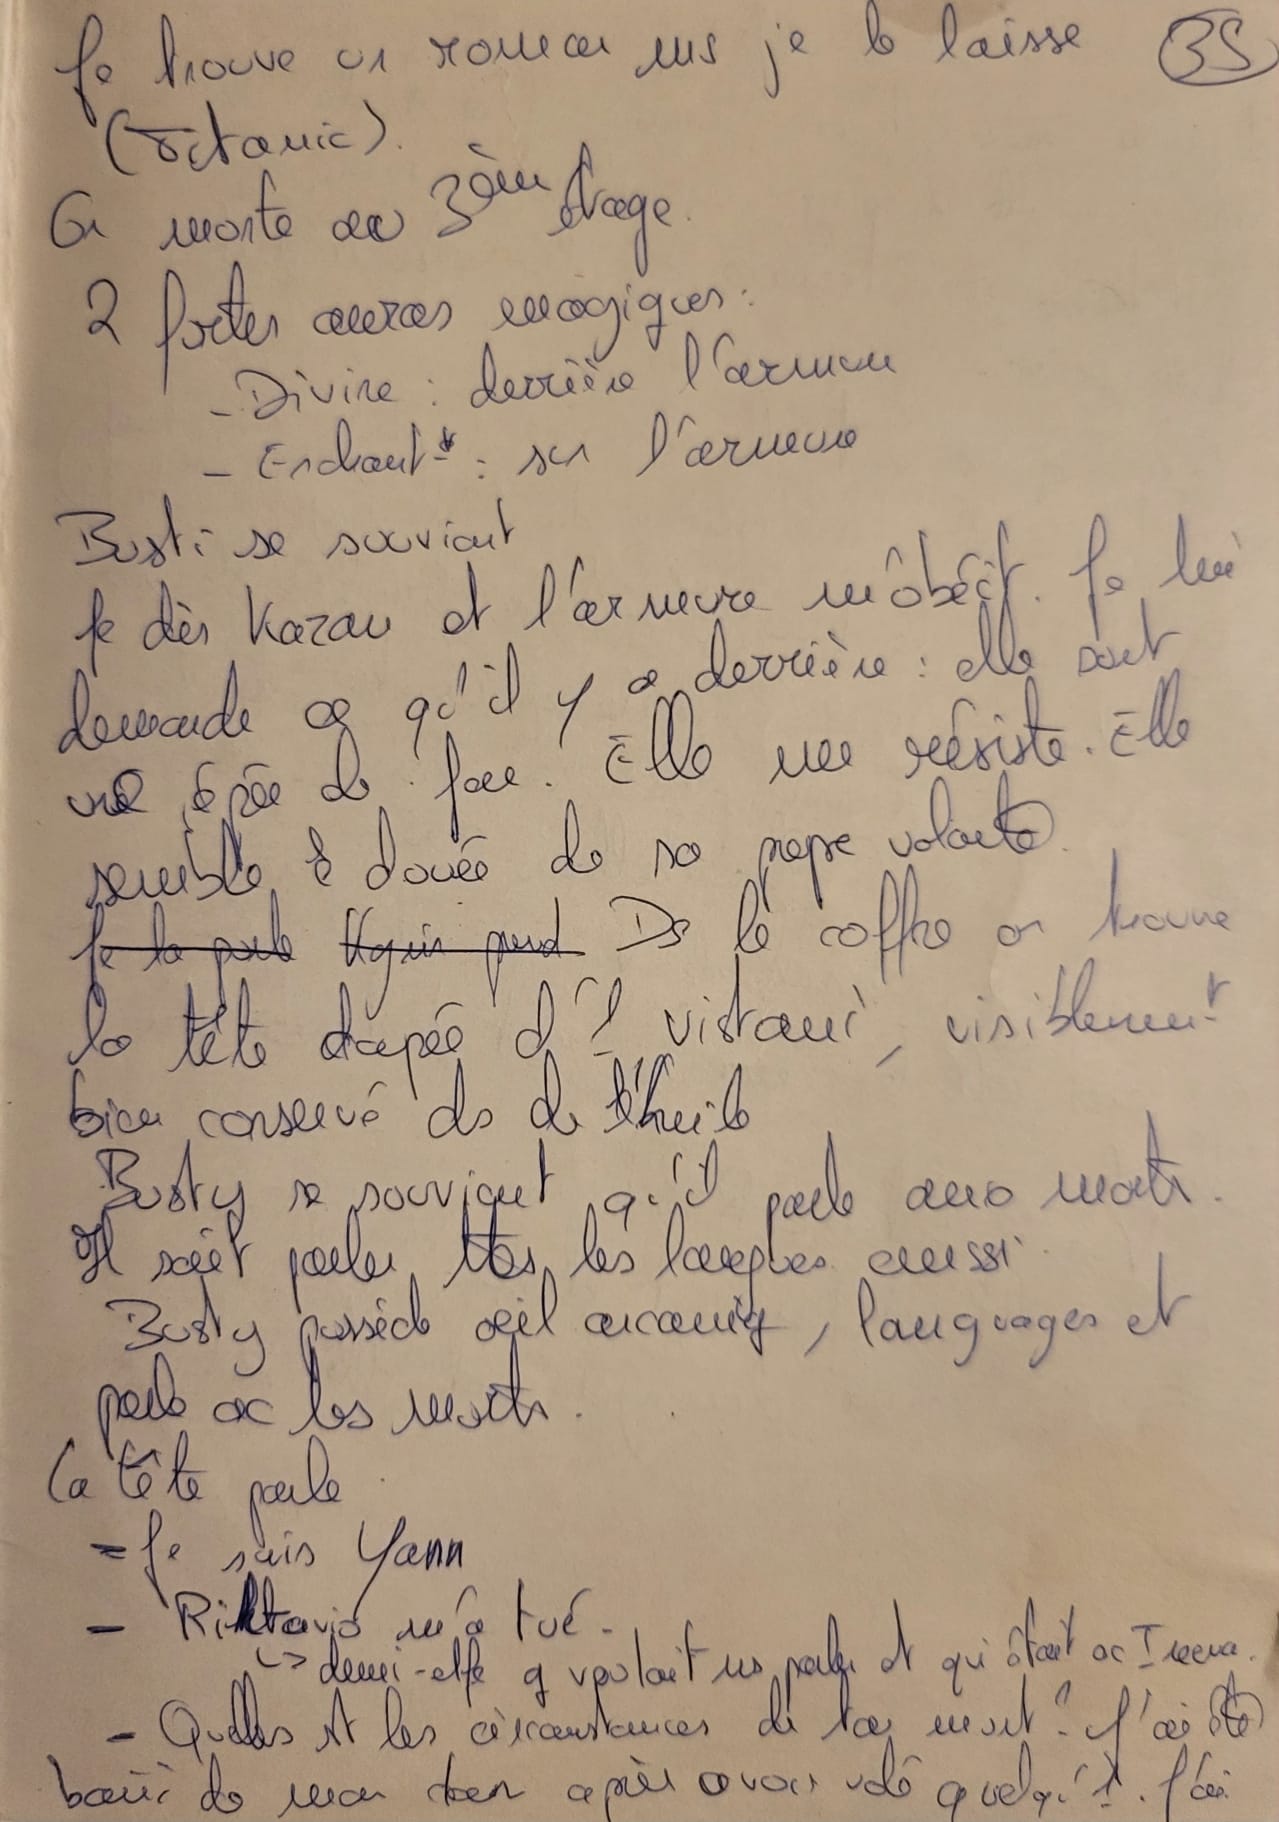 Je trouve un roman ms je le laisse (35)
(Titanic).
On monte au 3ème étage.
2 fortes auras magiques :
- Divine : derrière l'armure
- Enchantt : sur l'armure
Busti se souvient
Je dis Kazan et l'armure m'obéit. Je lui
demande ce qu'il y a derrière : elle sort
une épée de face. Elle me résiste. Elle
semble ê douée de sa propre volonté.
Je la parle prend Ds le coffre on trouve
la tête drapée d'1 vistani, visiblement
bien conservé ds de l'huile
Busty se souvient qu'il parle aux morts.
Il sait parler ttes les langues aussi.
Busty possède œil arcaniq, languages et
parle ac les morts.
La tête parle
- Je suis Yann
- Riktavio m'a tué.
↳ demi-elfe q voulait ns parler et qui était ac Ireena.
- Quelles st les circonstances de ta mort ? J'ai été
banni de mon clan après avoir volé quelqu'1. J'ai